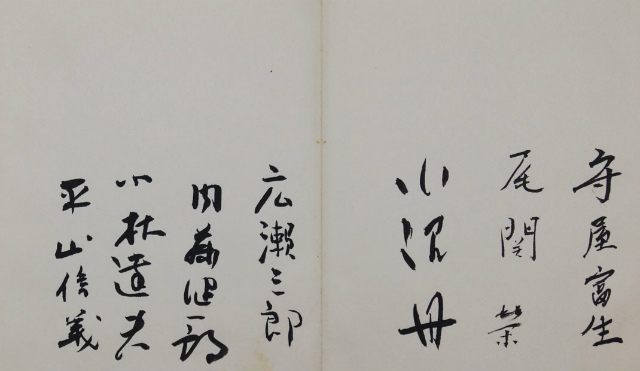 守屋富生
尾関 栄
小沼丹
広瀬三郎
内藤健一郎
小林達夫
平山信義